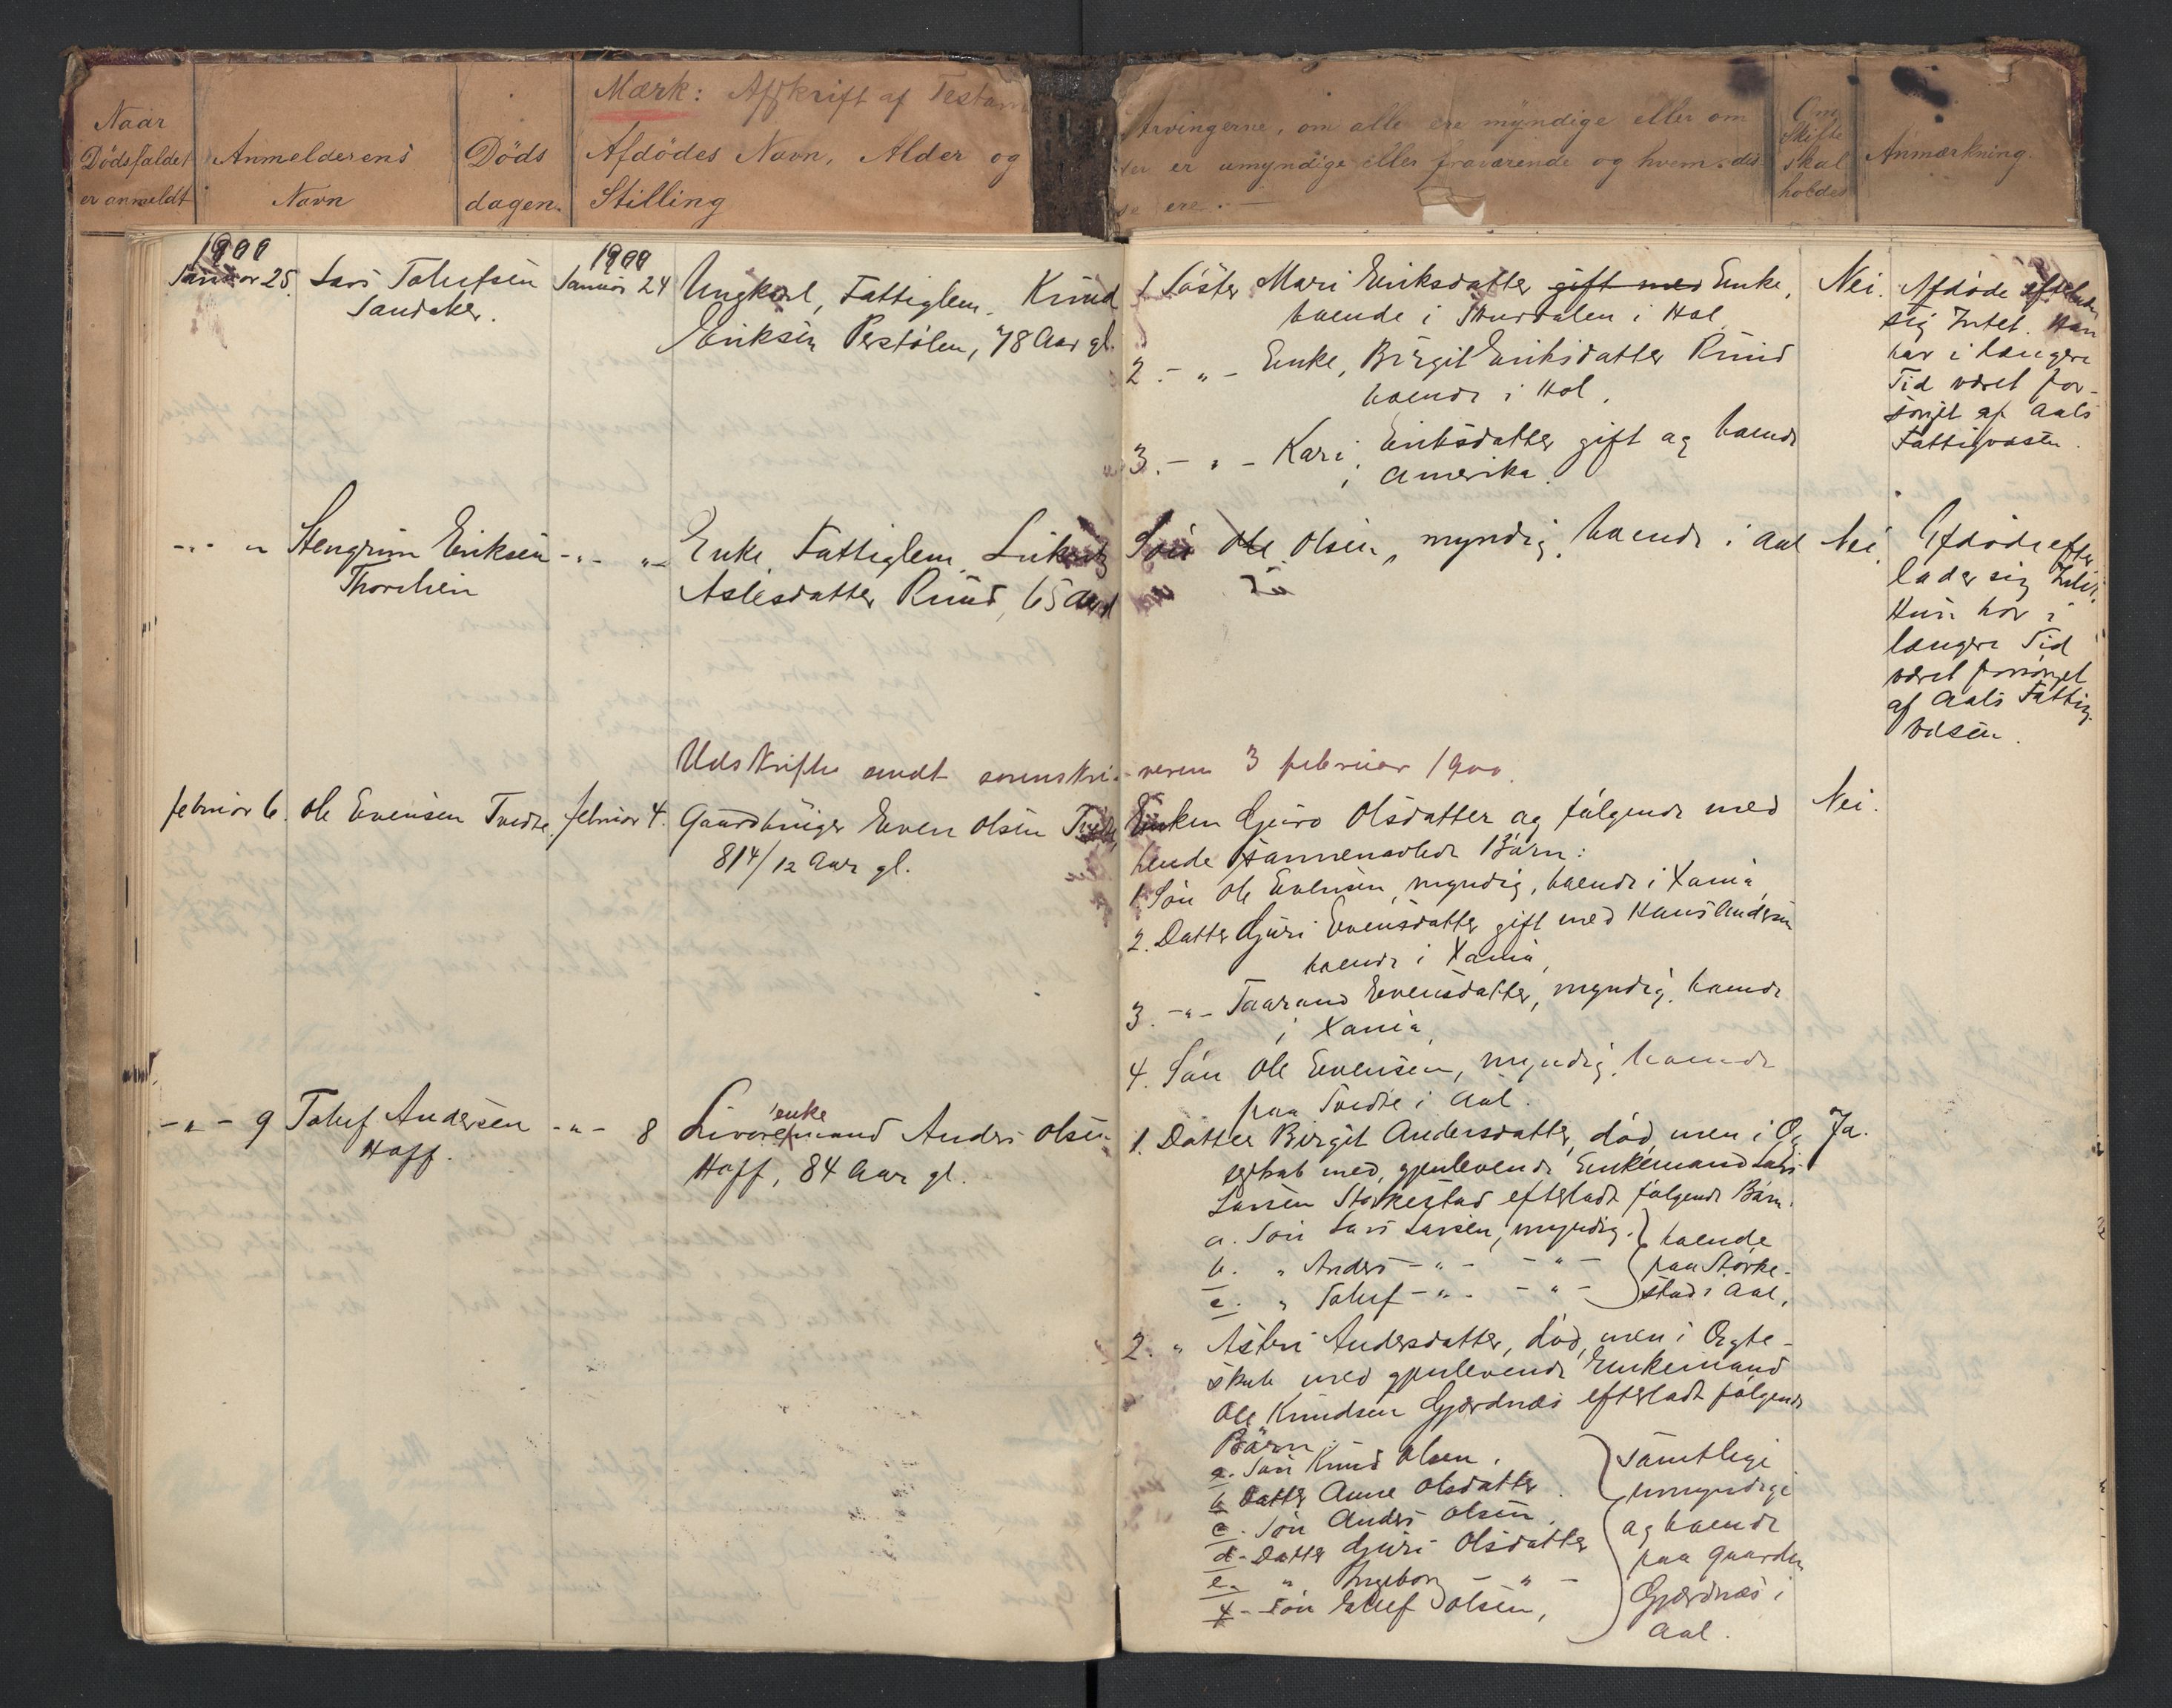 Mærk: Afskrift af Testam
Naar
Dödsfaldet
er anmeldt
Anmelderens
Navn
Döds
dagen.
Afdödes Navn, Alder og
Stilling
Arvingerne, om alle ere myndige eller om
er umyndige eller fraværende og hvem dis
se ere. —
Om
Skifte
skal
holdes
Anmærkning.
1900
Januar 25.
Lars Tolufsen
Sandaker.
1900
Januar 24
Ungkarl, Fattiglem. Knud
Eriksen Perstölen, 78 Aar gl.
1 Söster Mari Eriksdatter gift med Enke,
boende i Skurdalen i Hol.
2. - " - Enke, Birgit Eriksdatter Ruud
boende i Hol.
3. - " - Kari Eriksdatter gift og boende
i Amerika.
Nei.
Afdöde efterlader
sig Intet. Han
har i længere
Tid været for-
sörget af Aals
Fattigvæsen.
- " - "
Stengrim Eriksen
Thorslien
- " - "
Enke, Fattiglem,
Aslesdatter Ruud, 65 Aar
Sön Ole Olsen, myndig, boende i Aal
Nei
Afdöde efter
lader sig Intet.
Hun har i
længere Tid
været forsörget
af Aals Fattig-
væsen.
Udskrifter sendt sorenskri-
veren 3 februar 1900.
februar 6.
Ole Evensen Tvedte.
februar 4.
Gaardbruger Even Olsen Tvedte,
81 4/12 Aar gl.
Enken Guro Olsdatter og fölgende med
hende sammenavlede Börn:
1. Sön Ole Evensen, myndig, boende i Xania,
2. Datter Guri Evensdatter gift med Hans Andersen
boende i Xania,
3. - " - Taarand Evensdatter, myndig, boende
i Xania,
4. Sön Ole Evensen, myndig, boende
paa Tvedte i Aal.
Nei.
- " - 9
Toluf Andersen
Hoff.
- " - 8
enke
Livöremand Anders Olsen
Hoff, 84 Aar gl.
1. Datter Birgit Andersdatter, död, men i Æg
teskab med gjenlevende Enkemand Lars
Larsen Storkestad efterladt fölgende Börn.
a. Sön Lars Larsen, myndig.
b. " Anders - " - - " -
c. " Toluf - " - - " -
boende
paa Storke-
stad i Aal,
2. " Astri Andersdatter, död, men i Ægte-
skab med gjenlevende Enkemand
Ole Knudsen Gjærdnæs efterladt fölgende
Börn
a. Sön Knud Olsen.
b. Datter Anne Olsdatter.
c. Sön Anders Olsen.
d. Datter Guri Olsdatter
e. " Ingeborg - " -
f. Sön Eluf Olsen,
samtlige
umyndige
og boende
paa Gaarden
Gjærdnæs i
Aal.
Ja.